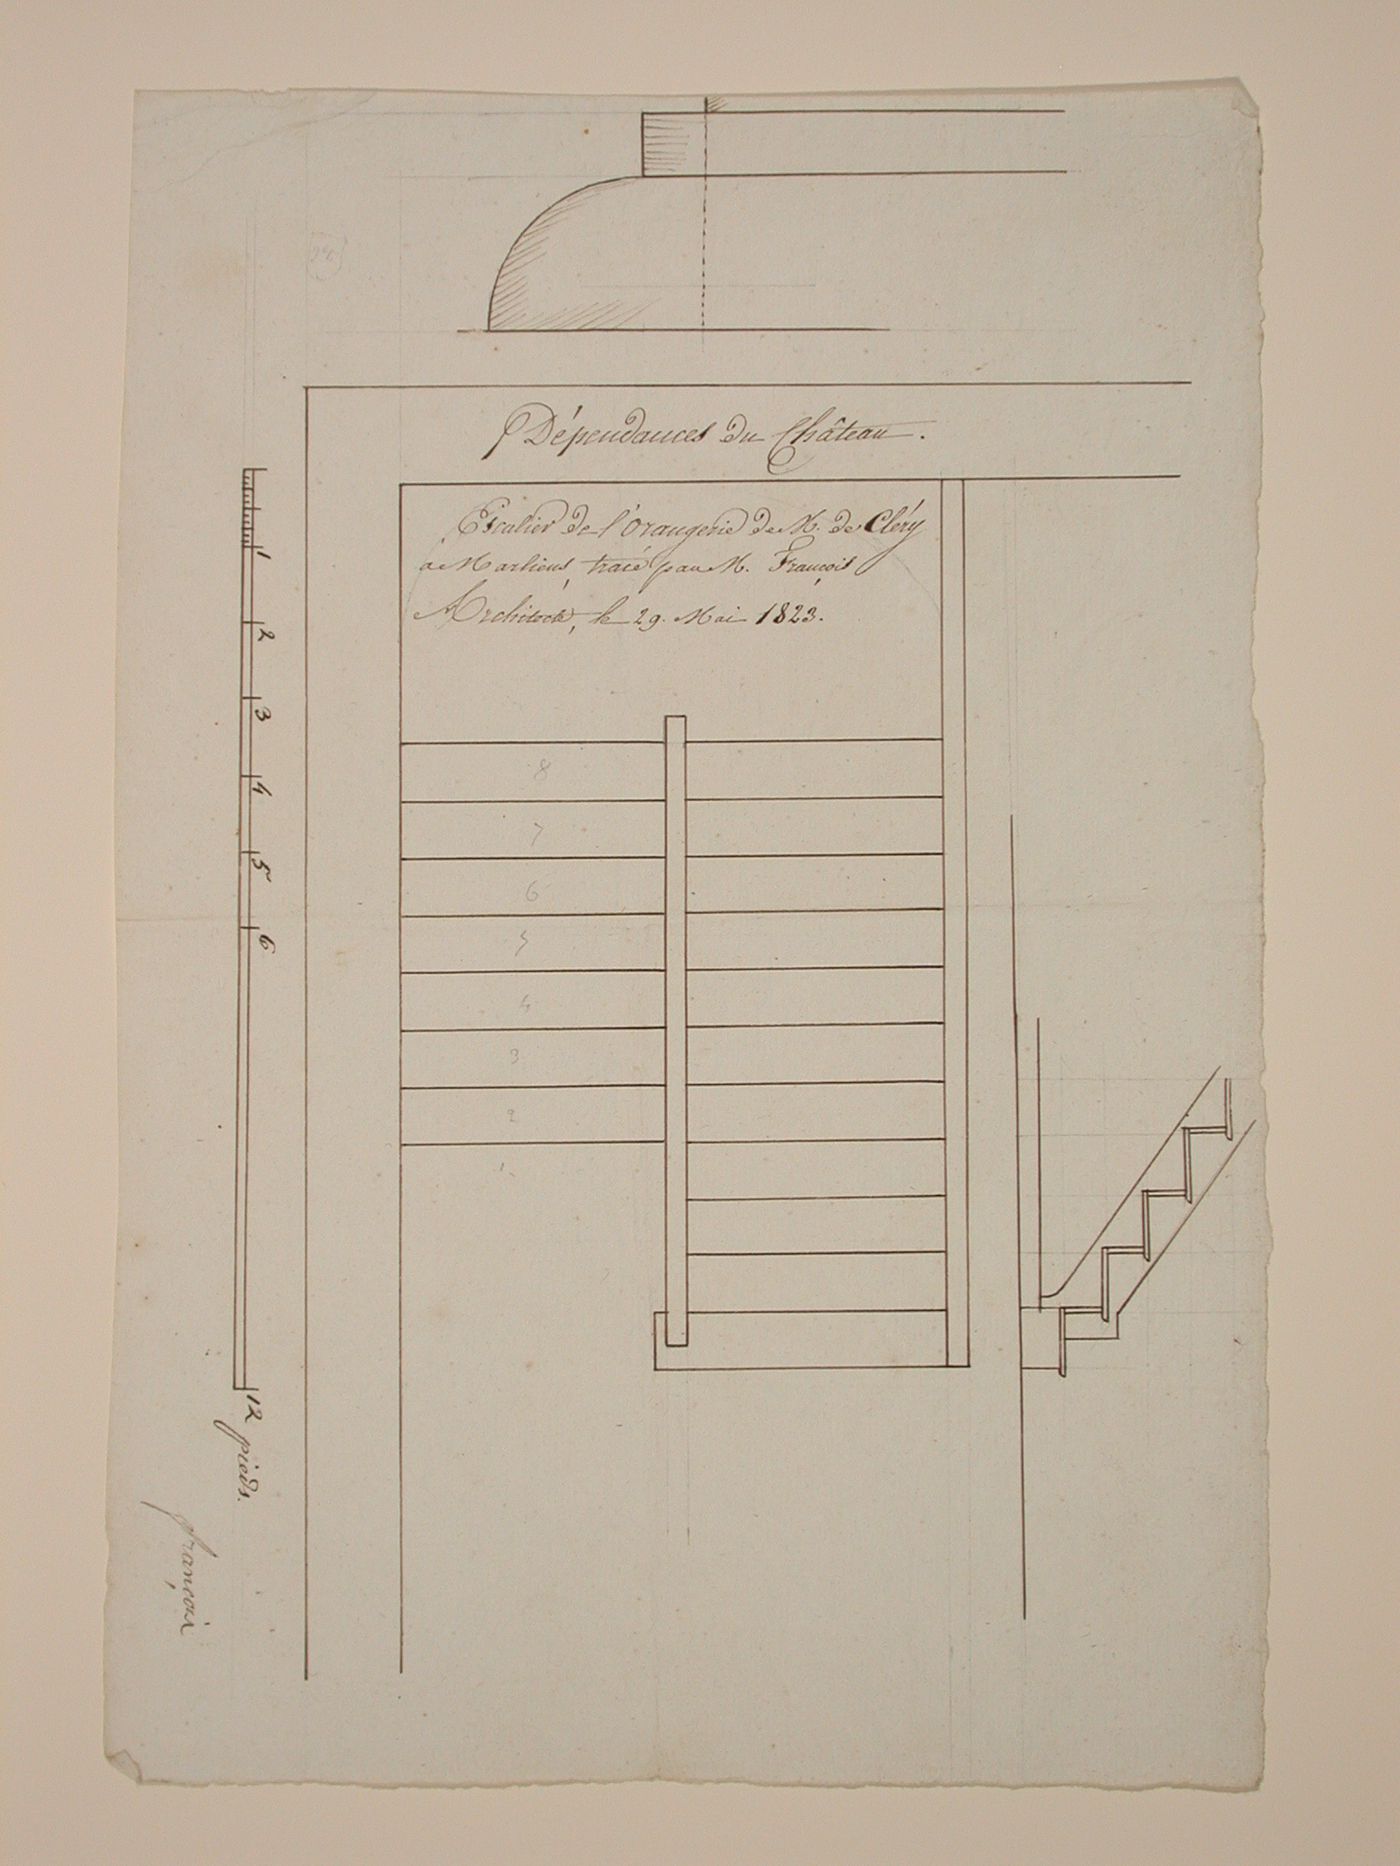 Dépendances du Château.
Escalier de l'orangerie de M. de Cléry
à Marliens, tracé par M. François
Architecte, le 29. Mai 1823.
8
7
6
5
4
3
2
1
1
2
3
4
5
6
12 pieds.
françois